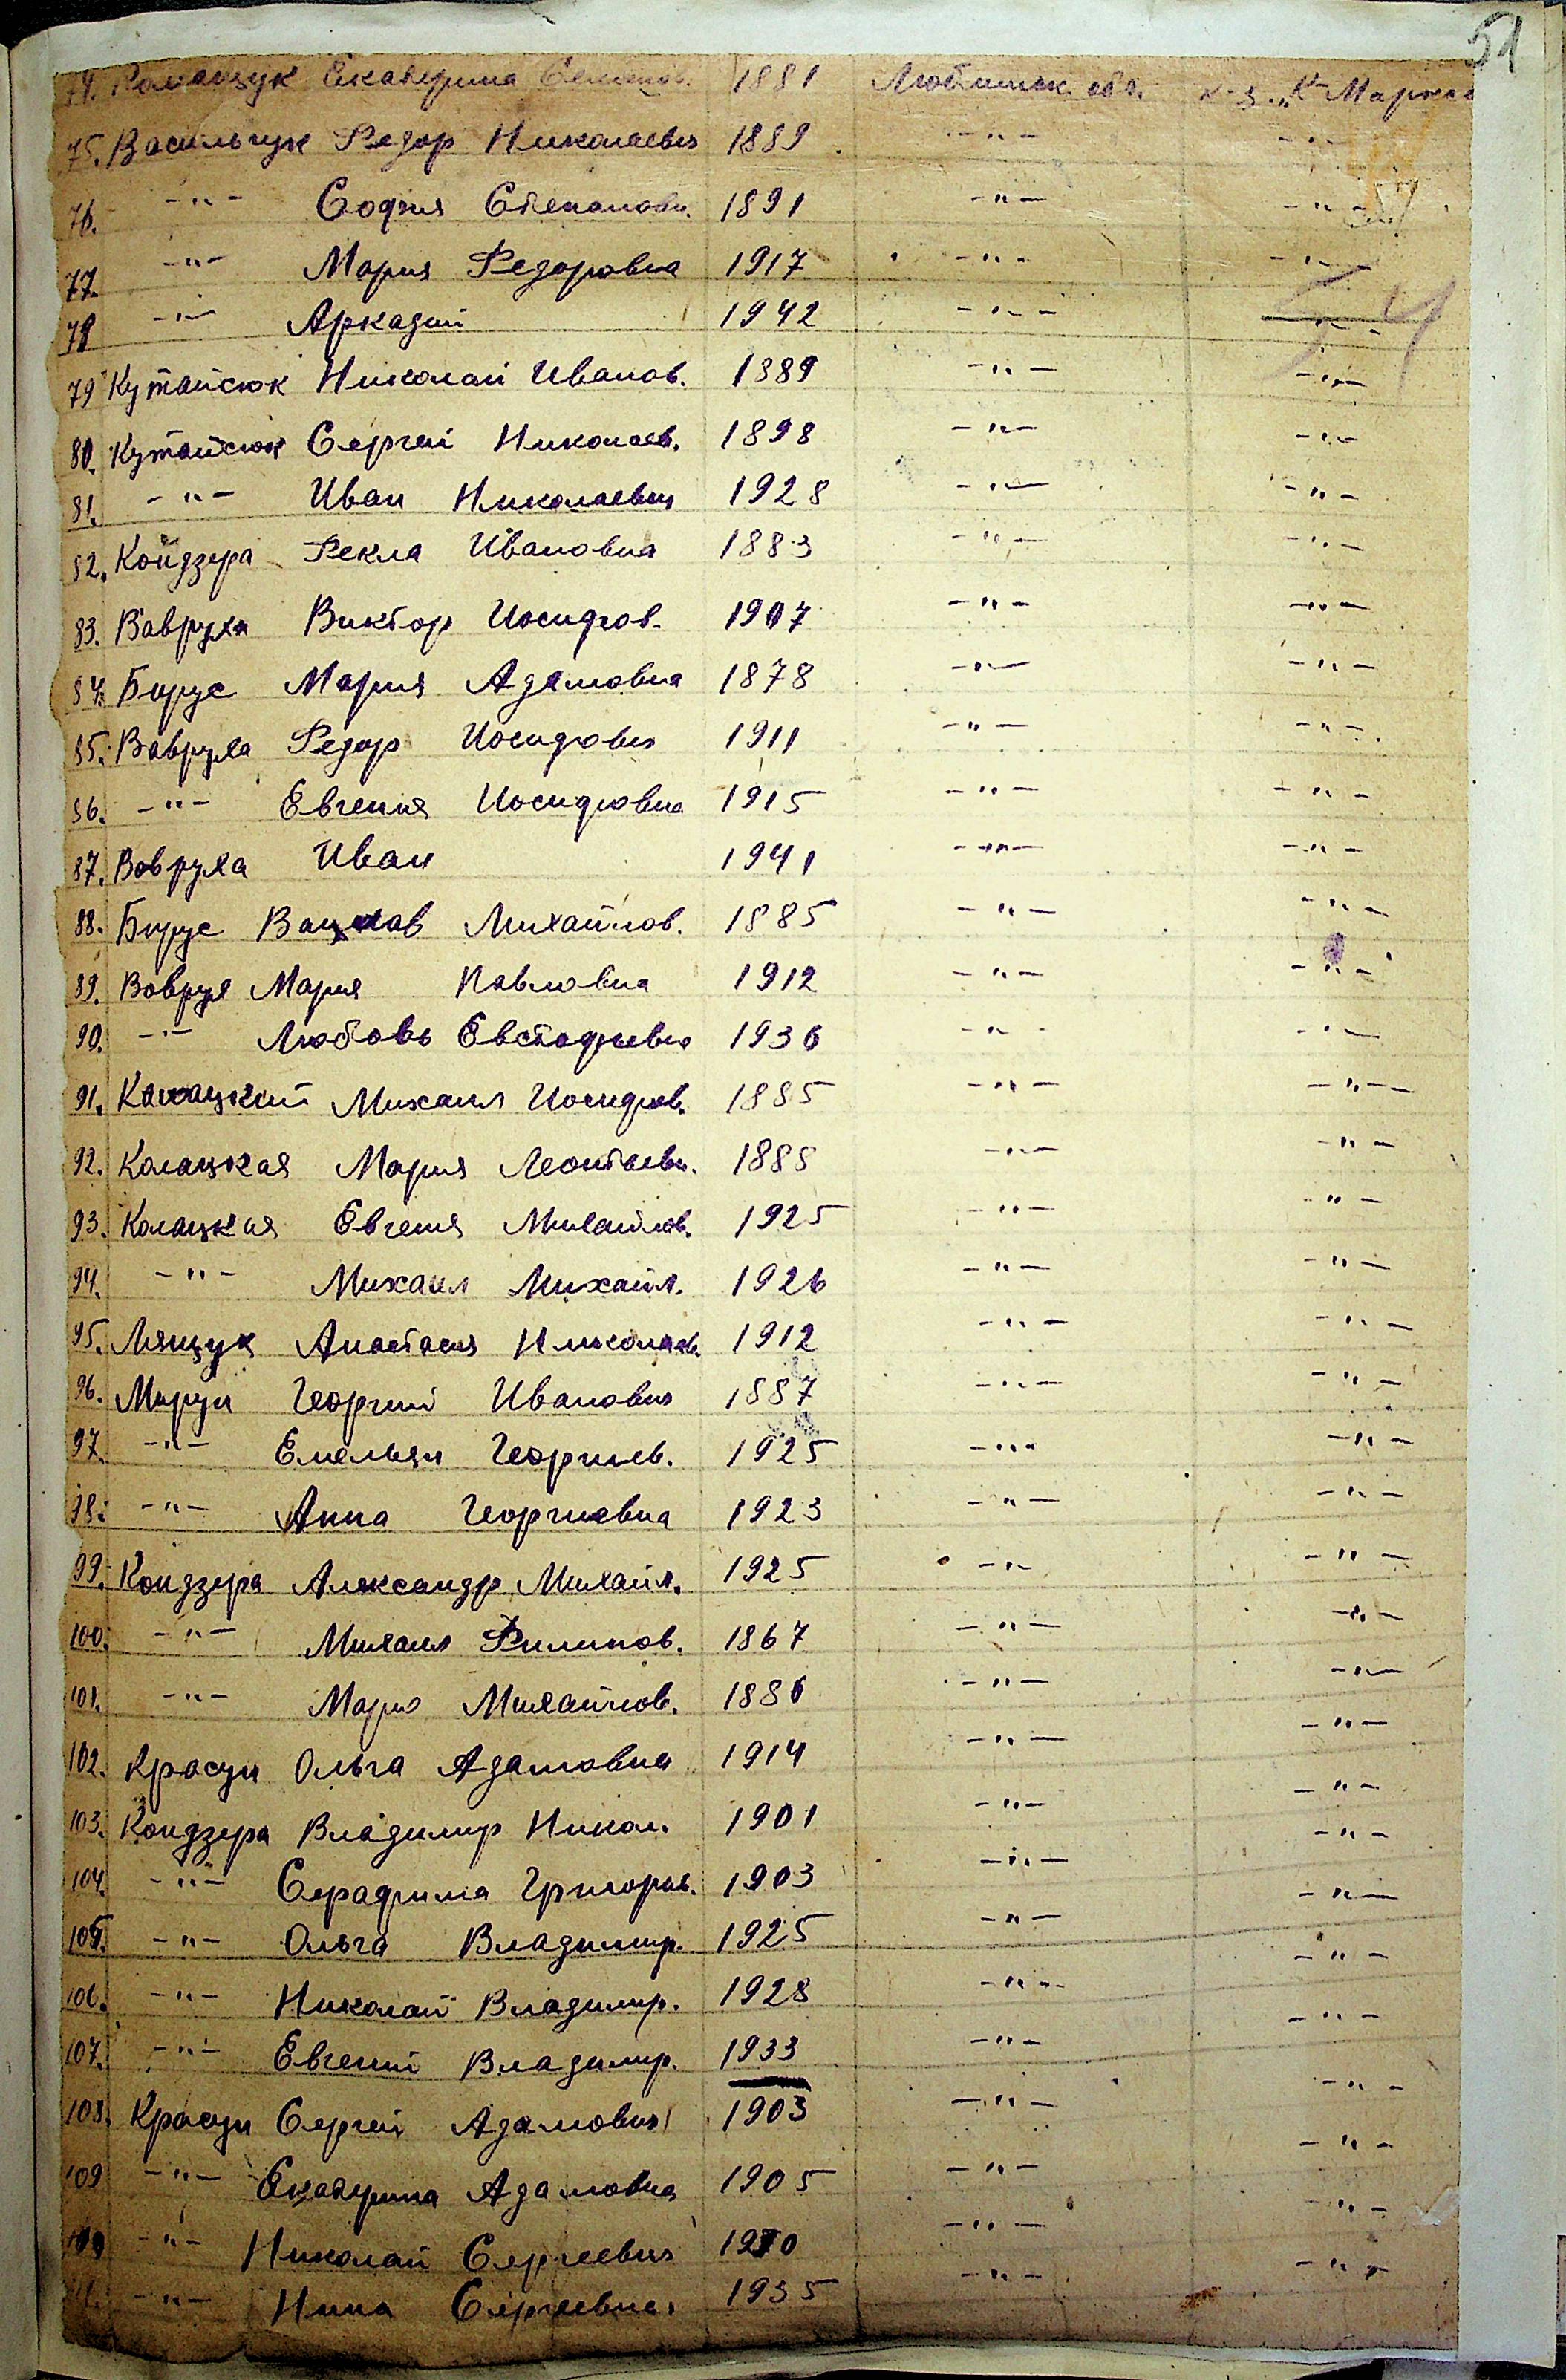 51
74. Романчук Екатерина Семенов. 1881 Люблинск. обл. к-з "К-Маркса
75. Васильчук Федор Николаевич 1889 -"- -"-
76. -"- София Степановн. 1891 -"- -"-
77. -"- Мария Федоровна 1917 -"- -"-
78 -"- Аркадий 1942 -"- -"-
79 Кутайсюк Николай Иванов. 1889 -"- -"-
80. Кутайсюк Сергей Николаев. 1898 -"- -"-
81. -"- Иван Николаевич 1928 -"- -"-
82. Кондзера Фекла Ивановна 1883 -"- -"-
83. Вавруха Виктор Иосифов. 1907 -"- -"-
84. Бирус Мария Адамовна 1878 -"- -"-
85. Вавруха Федор Иосифович 1911 -"- -"-
86. -"- Евгения Иосифовна 1915 -"- -"-
87. Вовруха Иван 1941 -"- -"-
88. Бирус Вацлав Михайлов. 1885 -"- -"-
89. Воврух Мария Павловна 1912 -"- -"-
90. -"- Любовь Евстафьевна 1936 -"- -"-
91. Калацкий Михаил Иосифов. 1885 -"- -"-
92. Калацкая Мария Леонтьевн. 1888 -"- -"-
93. Калацкая Евгения Михайлов. 1925 -"- -"-
94. -"- Михаил Михайл. 1926 -"- -"-
95. Лящук Анастасия Николаев. 1912 -"- -"-
96. Мирун Георгий Иванович 1887 -"- -"-
97. -"- Емельян Георгиев. 1925 -"- -"-
98. -"- Анна Георгиевна 1923 -"- -"-
99. Кондзера Александр Михайл. 1925 -"- -"-
100. -"- Михаил Филипов. 1867 -"- -"-
101. -"- Мария Михайлов. 1886 -"- -"-
102. Красун Ольга Адамовна 1914 -"- -"-
103. Кондзера Владимир Никол. 1901 -"- -"-
104. -"- Серафима Григорьев. 1903 -"- -"-
105. -"- Ольга Владимир. 1925 -"- -"-
106. -"- Николай Владимир. 1928 -"- -"-
107. -"- Евгений Владимир. 1933 -"- -"-
108. Красун Сергей Адамович 1903 -"- -"-
109 -"- Екатерина Адамовна 1905 -"- -"-
-"- Николай Сергеевич -"- -"-
-"- Нина Сергеевна 1935 -"- -"-